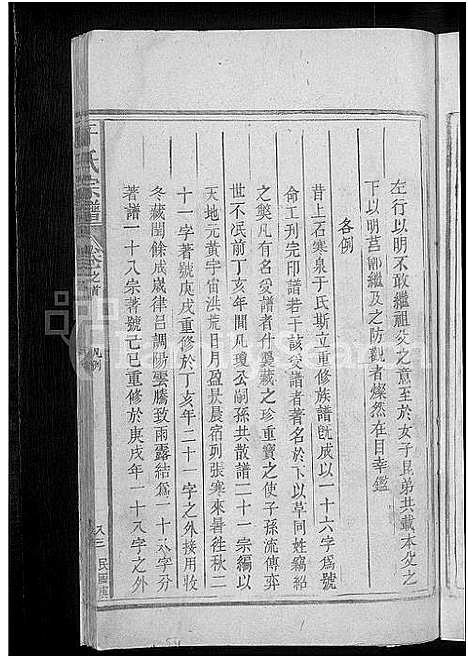 左行以明不敢繼祖父之意至於女子昆弟共載本父之
下以明莒鄫繼及之防觀者燦然在目幸鑑
各例
昔上石寒泉于氏斯立重修族譜旣成以一十六字爲號
命工刋完印譜若干該受譜者著名於下以革同姓竊紹
之獘凡有名受譜者什襲藏之珍重寶之使子孫流傳弈
世不泯前丁亥年間凡瓊公嗣孫共散譜二十一宗編以
天地元黃宇宙洪荒日月盈昃晨宿列張寒來暑徃秋二
十一字著號庚戌重修於丁亥年二十一字之外接用收
冬藏閏餘成歲律呂調陽雲騰致雨露結爲一十八字分
著譜一十八宗著號己巳重修於庚戌年一十八字之外
于氏宗譜
卷之首
凡例
民國